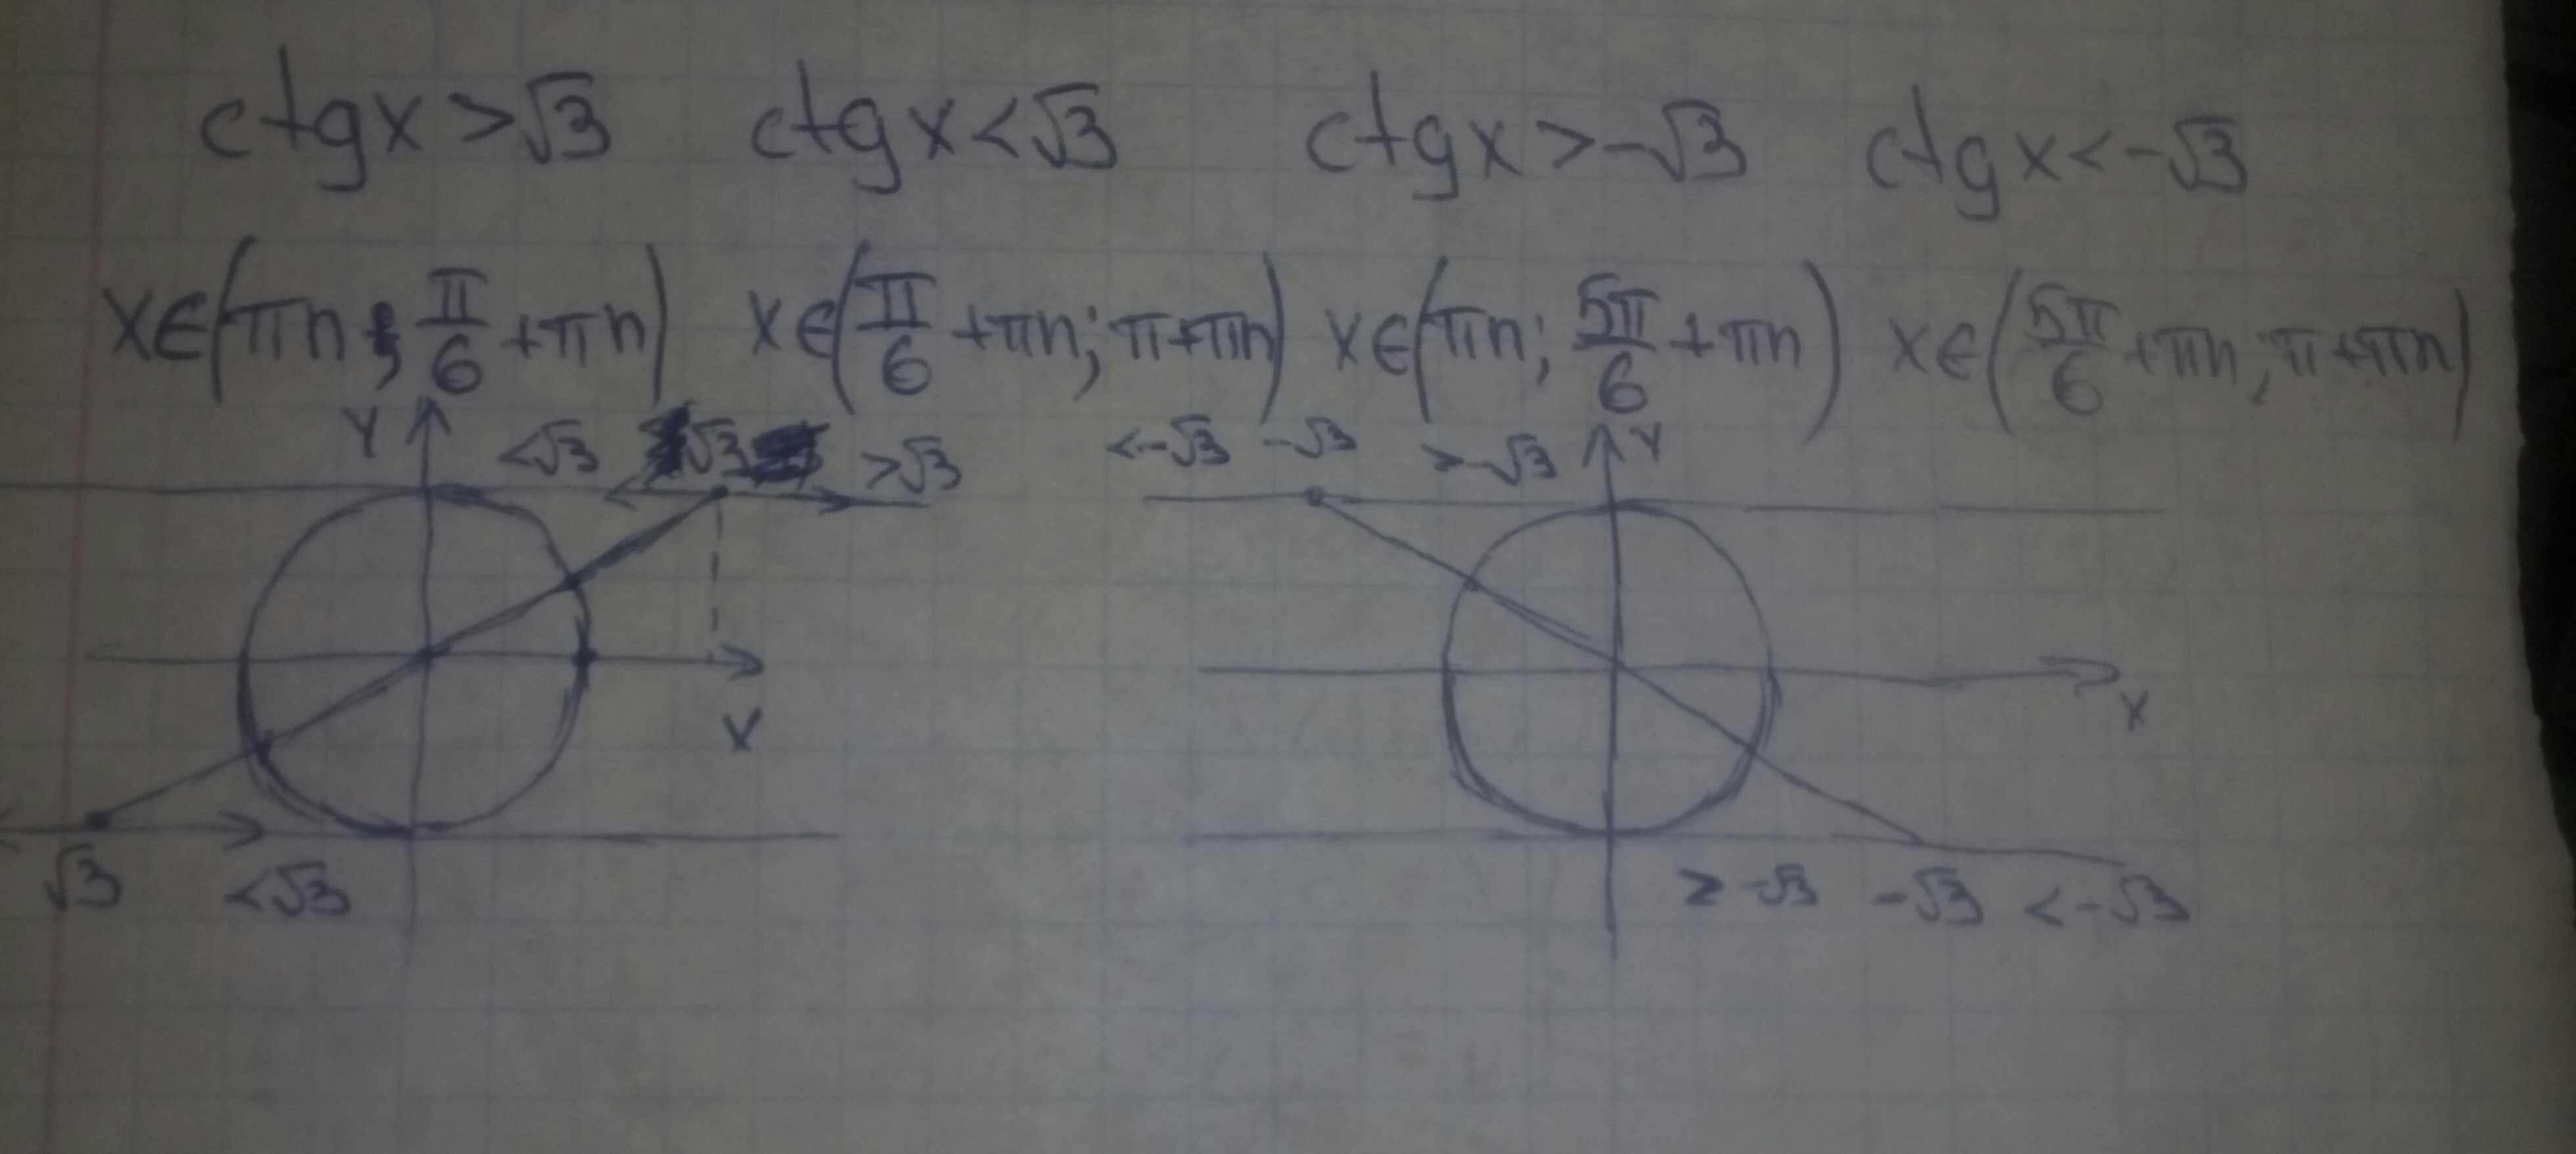 ctgx>√3 ctgx<√3 ctgx>-√3 ctgx<-√3
x∈(πn; π/6+πn) x∈(π/6+πn; π+πn) x∈(πn; 5π/6+πn) x∈(5π/6+πn; π+πn)
Y <√3 √3 >√3 <-√3 -√3 >-√3 Y
X X
√3 <√3 ≥-√3 -√3 <-√3